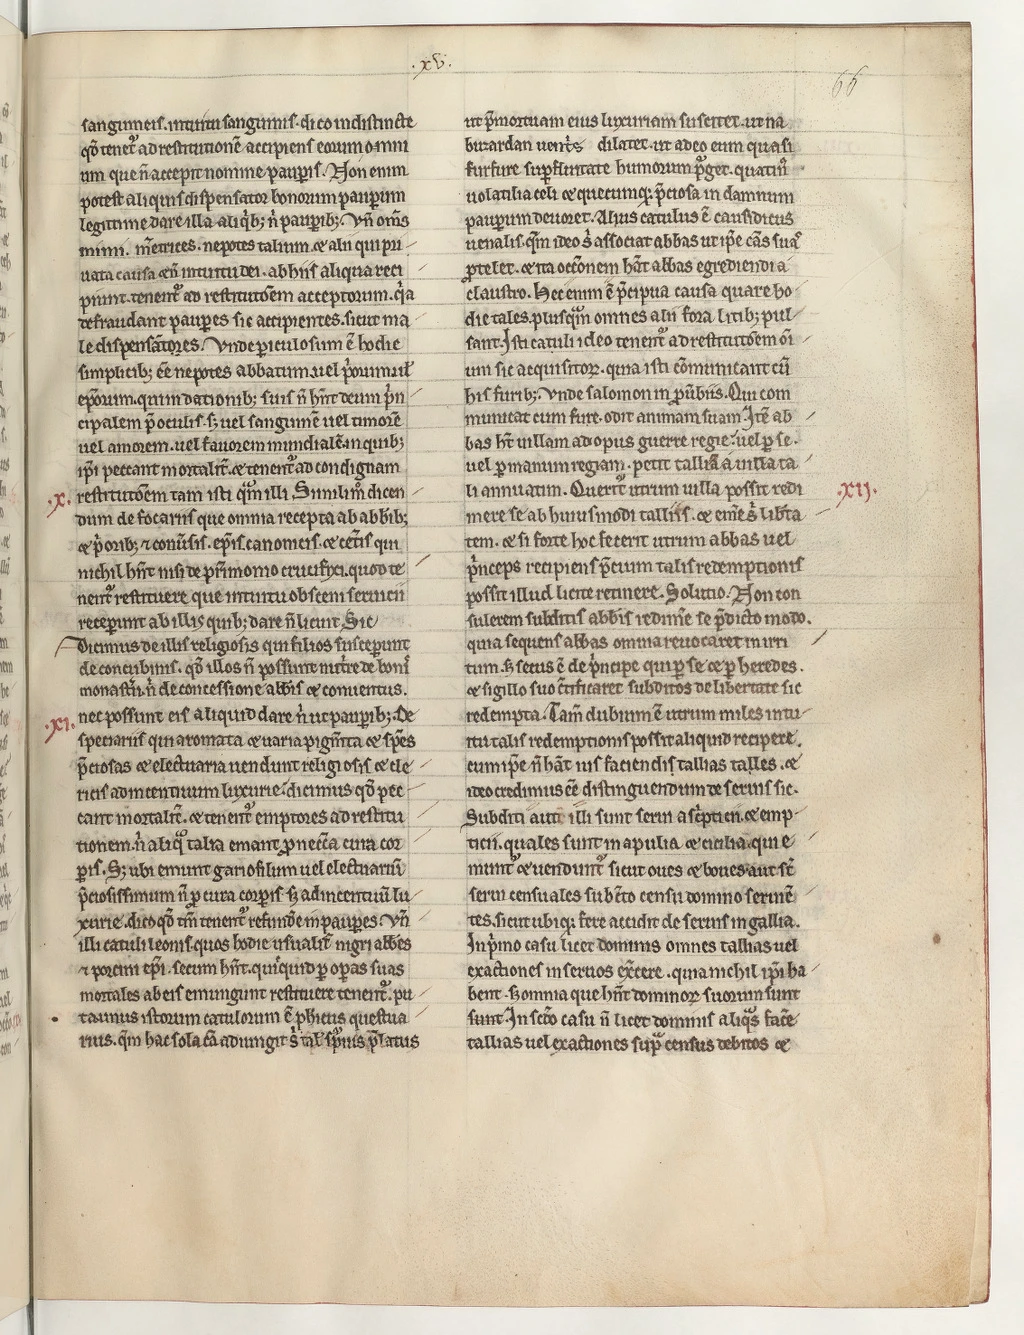 .xv.
66
sanguineis. intuitu sanguinis. dico indistincte
qđ tenet᷑ ad restitutionē accipiens eorum omni
um que ñ accepit nomine paup̲is. Non enim
potest aliquis dispensator bonorum pauperum
legitime dare illa aliq̇b; ñ paup̲ib;. Vñ om̄s
mimi. m̄etrices. nepotes talium. ⁊ alii qui pri
uata causa ⁊ ñ intuitu dei. abhiis aliqua reci
piunt. tenent᷑ ad restitutōem acceptorum. q̇a
defraudant paup̲es sic accipientes. sicut ma
le dispensatores. Vnde periculosum ē hodie
simplicib; ēe nepotes abbatum. uel
ep̄orum. qui in dationib; suis ñ hñt deum p̄n
cipalem p̄ oculis. s; uel sanguinē uel timorē
uel amorem. uel fauorem mundialē in quib;
ip̄i peccant mortalit̄. ⁊ tenent᷑ ad condignam
.x. restitutōem tam isti q̄m illi. Similit̄ dicen
dum de focariis que omnia recepta ab abb̄ib;
⁊ p̓orib; ⁊ conūsis. ep̄is. canonicis. ⁊ cet̄is qui
nichil hñt nisi de pat̄imonio crucifixi. quod te
nent᷑ restituere que intuitu obsceni seruicii
receperunt ab illis quib; dare ñ licuit. Sic
Dicimus de illis religiosis qui filios susceperunt
de concubinis. qđ illos ñ possunt nut̓re de bonis
monast̄ii. ñ de concessione abb̄is ⁊ conuentus.
.xi. nec possunt eis aliquid dare ñ ut paup̲ib;. De
speciariis qui aromata ⁊ uaria pigm̄ta ⁊ sp̄es
p̄ciosas ⁊ electuaria uendunt religiosis ⁊ cle
ricis ad incentiuum luxurie. dicimus qđ pec
cant mortalit̄. ⁊ tenent᷑ emptores ad restitu
tionem. ñ aliq̇ talia emant p̲ necc̄a cura cor
p̲is. S; ubi emunt gariofilum uel electuariū
p̄ciosissimum ñ p̲ cura corp̲is s; ad incentiuū lu
xurie. dico qđ tm̄ tenent᷑ refundere in paup̲es. Vñ
illi catuli leonis. quos hodie usualit̄ nigri abb̄es
⁊ porcini ep̄i. secum hñt. quicquid p̲ op̲as suas
mortales ab eis emungunt restituere tenent᷑. pu
tamus istorum catulorum ē phicus questua
rius. q̄m hac sola cā adiungit s̓ talis sp̄ualis p̄latus
ut p̄mortuam eius luxuriam suscitet. ut na
buzardan uent̓s dilatet. ut adeo eum quasi
furfure sup̲fluitate humorum p̲get. quatin᷒
uolatilia celi ⁊ quecumq; p̄ciosa in damnum
pauperum deuoret. Alius catulus ē causidicus
uenalis. q̄m ideo s̓ associat abbas ut ip̄e cās suas
p̲telet. ⁊ ita occōnem hāt abbas egrediendi a
claustro. Hec enim ē p̄cipua causa quare ho
die tales. plusq̄m omnes alii fora litib; pul
sant. Isti catuli ideo tenent᷑ ad restitutōem oī
um sic acquisitoꝝ. quia isti cōmunicant cū
his furib;. Vnde salomon in p̲ūbiis. Qui com
municat cum fure. odit animam suam. Itē ab
bas ht̄ uillam ad opus guerre regie. uel p̲ se.
uel p̲ manum regiam. petit tallia a uilla ta
li annuatim. Querit᷑ utrum uilla possit redi .xij.
mere se ab huiusmodi talliis. ⁊ emē s̓ lib̄ta
tem. ⁊ si forte hoc fecerit utrum abbas uel
p̓nceps recipiens p̄cium talis redemptionis
possit illud licite retinere. Solutio. Non con
sulerem subditis abb̄is redim̄e se p̄dicto modo.
quia sequens abbas omnia reuocaret in irri
tum. s; secus ē de p̓ncipe qui p̲ se ⁊ p̲ heredes.
⁊ sigillo suo c̄tificaret subditos de libertate sic
redempta. Tam̄ dubium ē utrum miles intu
itu talis redemptionis possit aliquid recipere.
cum ip̄e ñ hāt ius faciendi tallias talles. ⁊
ideo credimus ēe distinguendum de seruis sic.
Subditi aut̄ illi sunt serui asc̓ptien. ⁊ emp
ticii. quales sunt in apulia ⁊ cicilia. qui e
munt᷑ ⁊ uendunt᷑ sicut oues ⁊ boues aut st̄
serui censuales sub c̄to censu domino seruiē
tes. sicut ubiq; fere accidit de seruis in gallia.
In p̓mo casu licet dominis omnes tallias uel
exactiones in seruos ex̄cere. quia nichil ip̄i ha
bent. s; omnia que hñt dominoꝝ suorum sunt
sunt. In sc̄do casu ñ licet dominis aliq̄s fac̄e
tallias uel exactiones sup̄ census debitos ⁊